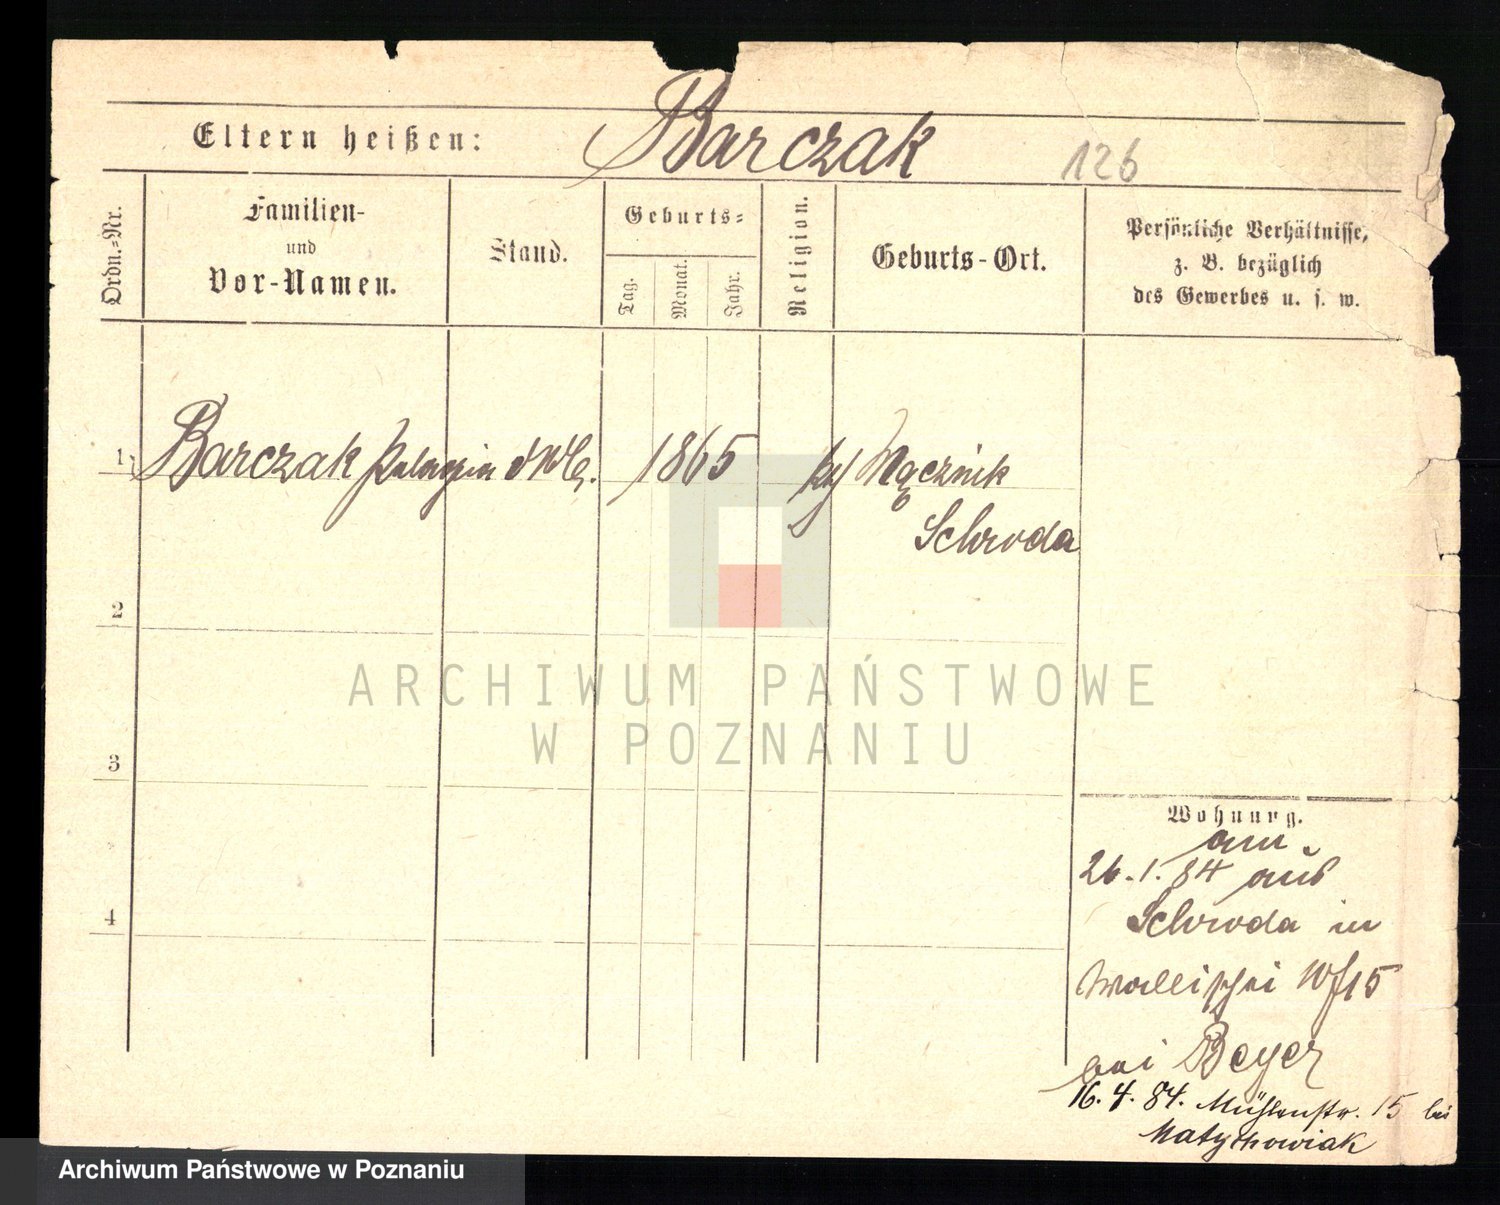 Eltern heißen: Barczak 126
Ordn.-Nr.
Familien-
und
Vor-Namen.
Stand.
Geburts-
Tag.
Monat.
Jahr.
Religion.
Geburts-Ort.
Persönliche Verhältnisse,
z. B. bezüglich
des Gewerbes u. s. w.
1 Barczak Pelagia 1865 Mącznik
Schroda
2
3
4
ARCHIWUM PAŃSTWOWE
W POZNANIU
Wohnung.
am
26.1.84 aus
Schroda in
Wallischei 15
bei Beyer
16.4.84. Mühlenstr. 15 bei
Matychowiak
Archiwum Państwowe w Poznaniu